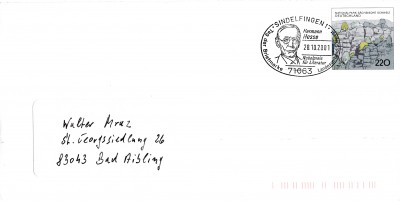 NATIONALPARK SÄCHSISCHE SCHWEIZ
DEUTSCHLAND
220
SINDELFINGEN 1
Tag der Briefmarke
Hermann
Hesse
28.10.2001
Nobelpreis
für Literatur
71063
Walter Mraz
St. Georgssiedlung 26
83043 Bad Aibling